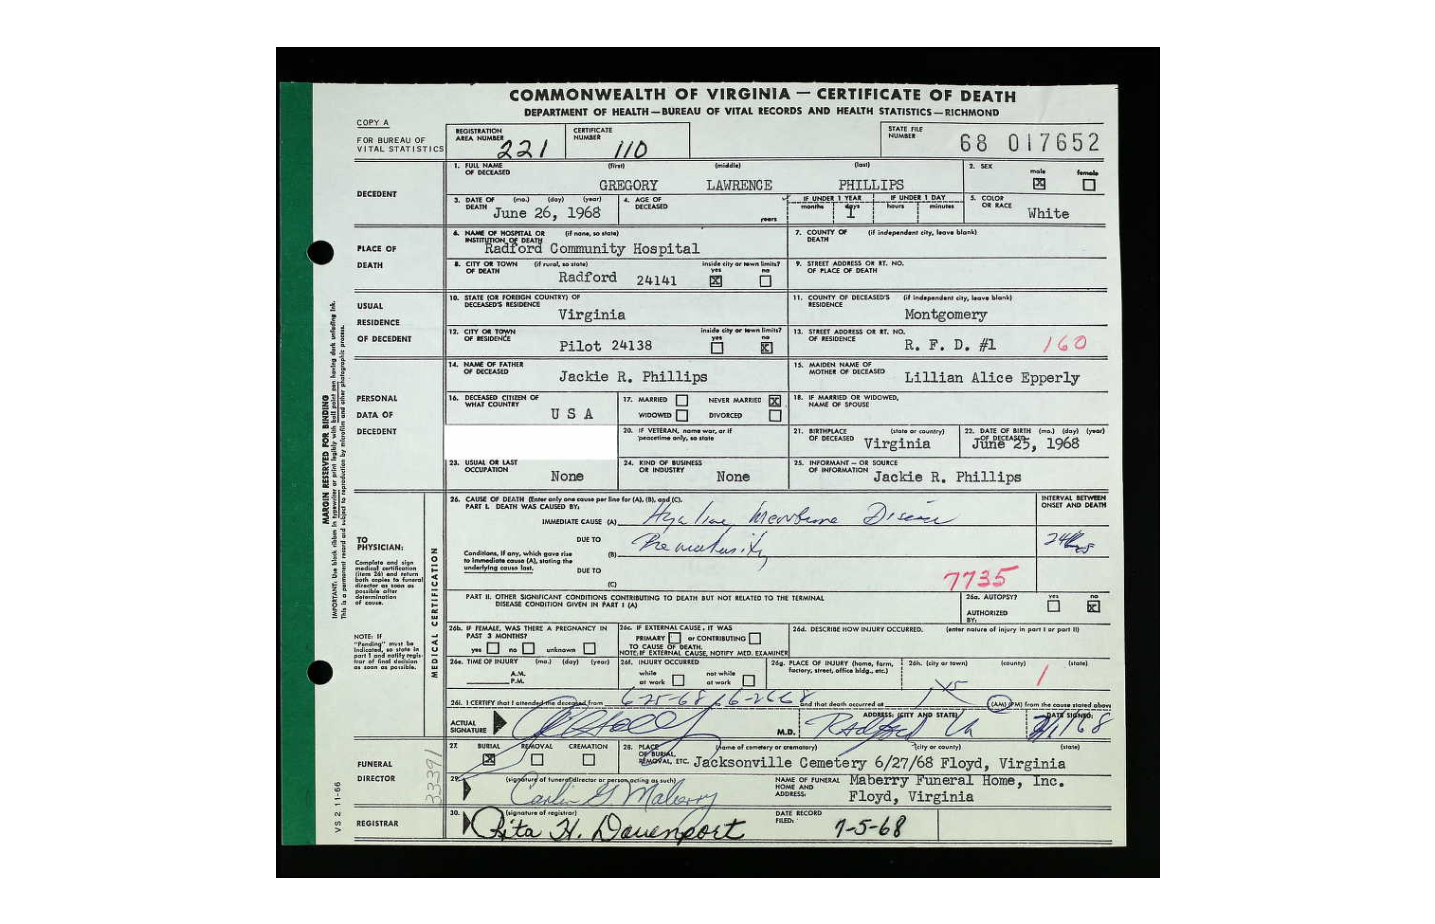 COMMONWEALTH OF VIRGINIA — CERTIFICATE OF DEATH
DEPARTMENT OF HEALTH—BUREAU OF VITAL RECORDS AND HEALTH STATISTICS—RICHMOND
COPY A
FOR BUREAU OF VITAL STATISTICS
REGISTRATION AREA NUMBER 221
CERTIFICATE NUMBER 110
STATE FILE NUMBER 68 017652
DECEDENT
1. FULL NAME OF DECEASED (first) (middle) (last)
GREGORY LAWRENCE PHILLIPS
2. SEX male female
3. DATE OF DEATH (mo.) (day) (year) June 26, 1968
4. AGE OF DECEASED years
IF UNDER 1 YEAR months days 1
IF UNDER 1 DAY hours minutes
5. COLOR OR RACE White
PLACE OF DEATH
6. NAME OF HOSPITAL OR INSTITUTION OF DEATH (if none, so state)
Radford Community Hospital
7. COUNTY OF DEATH (if independent city, leave blank)
8. CITY OR TOWN OF DEATH (if rural, so state) Radford 24141
inside city or town limits? yes no
9. STREET ADDRESS OR RT. NO. OF PLACE OF DEATH
USUAL RESIDENCE OF DECEDENT
10. STATE (OR FOREIGN COUNTRY) OF DECEASED'S RESIDENCE Virginia
11. COUNTY OF DECEASED'S RESIDENCE (if independent city, leave blank) Montgomery
12. CITY OR TOWN OF RESIDENCE Pilot 24138
inside city or town limits? yes no
13. STREET ADDRESS OR RT. NO. OF RESIDENCE R. F. D. #1 160
PERSONAL DATA OF DECEDENT
14. NAME OF FATHER OF DECEASED Jackie R. Phillips
15. MAIDEN NAME OF MOTHER OF DECEASED Lillian Alice Epperly
16. DECEASED CITIZEN OF WHAT COUNTRY U S A
17. MARRIED NEVER MARRIED
WIDOWED DIVORCED
18. IF MARRIED OR WIDOWED, NAME OF SPOUSE
20. IF VETERAN, name war, or if peacetime only, so state
21. BIRTHPLACE OF DECEASED (state or country) Virginia
22. DATE OF BIRTH OF DECEASED (mo.) (day) (year) June 25, 1968
23. USUAL OR LAST OCCUPATION None
24. KIND OF BUSINESS OR INDUSTRY None
25. INFORMANT — OR SOURCE OF INFORMATION Jackie R. Phillips
MARGIN RESERVED FOR BINDING
TO PHYSICIAN:
Complete and sign medical certification (item 26) and return both copies to funeral director as soon as possible after determination of cause.
NOTE: If "Pending" must be indicated, so state in part I and notify registrar of final decision as soon as possible.
MEDICAL CERTIFICATION
26. CAUSE OF DEATH (Enter only one cause per line for (A), (B), and (C).
PART I. DEATH WAS CAUSED BY:
INTERVAL BETWEEN ONSET AND DEATH
IMMEDIATE CAUSE (A) Hyaline Membrane Disease
DUE TO
(B) Prematurity
Conditions, if any, which gave rise to immediate cause (A), stating the underlying cause last.
DUE TO
(C)
7735
PART II. OTHER SIGNIFICANT CONDITIONS CONTRIBUTING TO DEATH BUT NOT RELATED TO THE TERMINAL DISEASE CONDITION GIVEN IN PART I (A)
26a. AUTOPSY? yes no
AUTHORIZED BY:
26b. IF FEMALE, WAS THERE A PREGNANCY IN PAST 3 MONTHS?
yes no unknown
26c. IF EXTERNAL CAUSE, IT WAS
PRIMARY or CONTRIBUTING
TO CAUSE OF DEATH.
NOTE: IF EXTERNAL CAUSE, NOTIFY MED. EXAMINER
26d. DESCRIBE HOW INJURY OCCURRED. (enter nature of injury in part I or part II)
26e. TIME OF INJURY (mo.) (day) (year)
A.M.
P.M.
26f. INJURY OCCURRED
while at work not while at work
26g. PLACE OF INJURY (home, farm, factory, street, office bldg., etc.)
26h. (city or town) (county) (state)
26i. I CERTIFY that I attended the deceased from 6-25-68 and that death occurred at (AM) (PM) from the cause stated above
ACTUAL SIGNATURE
M.D.
ADDRESS: (CITY AND STATE) Radford Va
DATE SIGNED:
FUNERAL DIRECTOR
27. BURIAL REMOVAL CREMATION
28. PLACE OF BURIAL, REMOVAL, ETC. (name of cemetery or crematory) (city or county) (state)
Jacksonville Cemetery 6/27/68 Floyd, Virginia
29. (signature of funeral director or person acting as such)
NAME OF FUNERAL HOME AND ADDRESS: Maberry Funeral Home, Inc.
Floyd, Virginia
REGISTRAR
30. (signature of registrar)
Rita H. Davenport
DATE RECORD FILED: 7-5-68
VS 2 11-66
33391